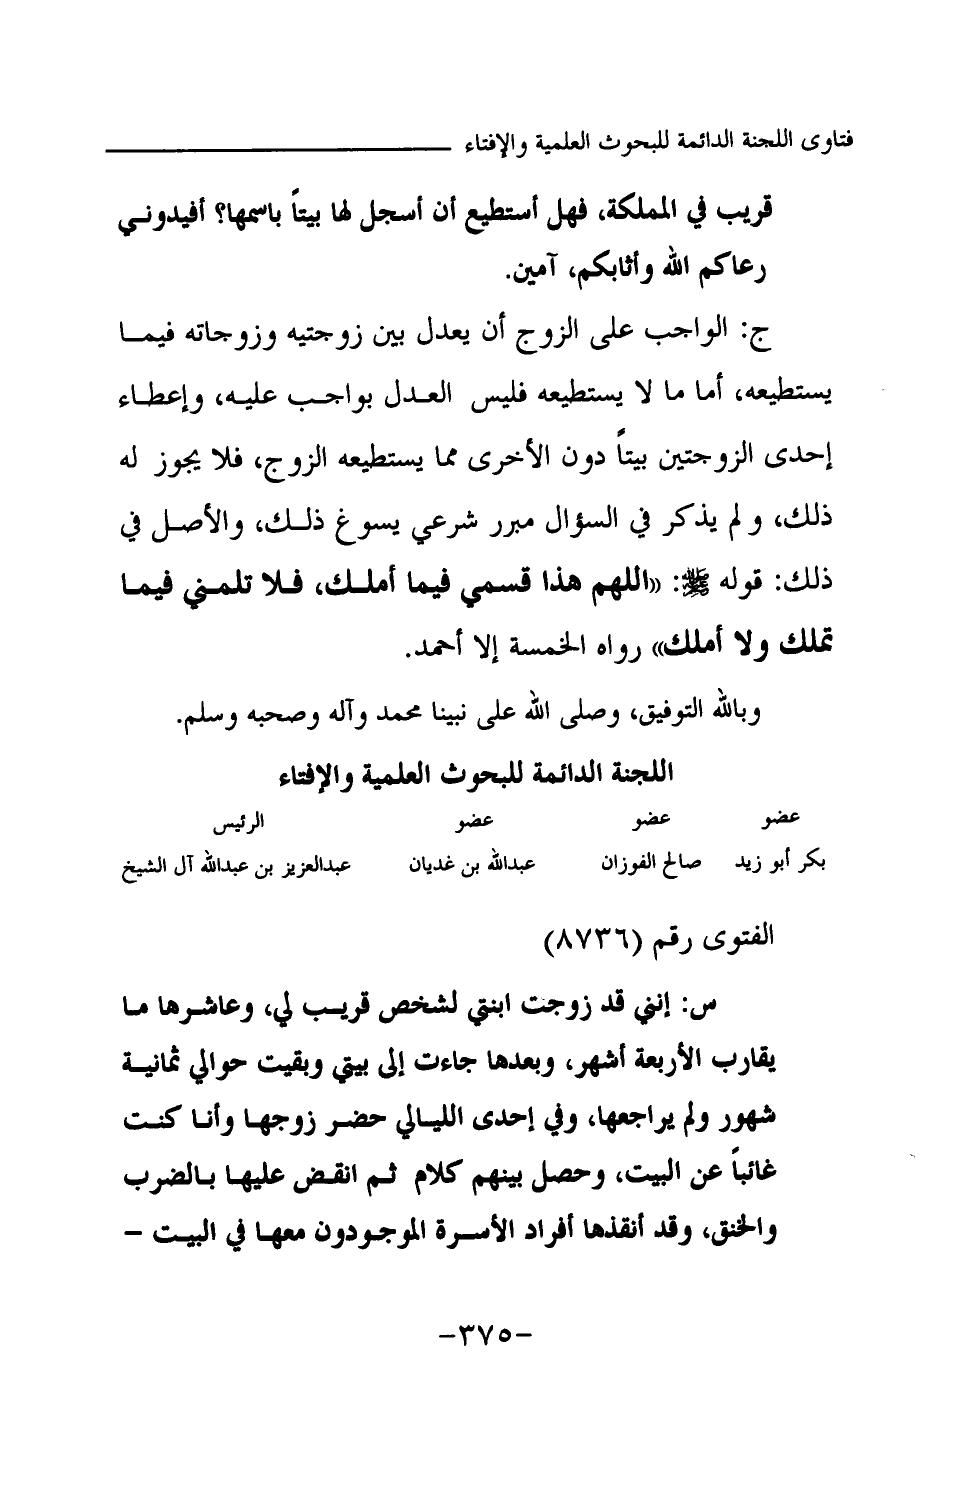 فتاوى اللجنة الدائمة للبحوث العلمية والإفتاء
قريب في المملكة، فهل أستطيع أن أسجل لها بيتاً باسمها؟ أفيدوني
رعاكم الله وأثابكم، آمين.
ج: الواجب على الزوج أن يعدل بين زوجتيه وزوجاته فيما
يستطيعه، أما ما لا يستطيعه فليس العدل بواجب عليه، وإعطاء
إحدى الزوجتين بيتاً دون الأخرى مما يستطيعه الزوج، فلا يجوز له
ذلك، ولم يذكر في السؤال مبرر شرعي يسوغ ذلك، والأصل في
ذلك: قوله ﷺ: «اللهم هذا قسمي فيما أملك، فلا تلمني فيما
تملك ولا أملك» رواه الخمسة إلا أحمد.
وبالله التوفيق، وصلى الله على نبينا محمد وآله وصحبه وسلم.
اللجنة الدائمة للبحوث العلمية والإفتاء
عضو عضو عضو الرئيس
بكر أبو زيد صالح الفوزان عبدالله بن غديان عبدالعزيز بن عبدالله آل الشيخ
الفتوى رقم (٨٧٣٦)
س: إنني قد زوجت ابنتي لشخص قريب لي، وعاشرها ما
يقارب الأربعة أشهر، وبعدها جاءت إلى بيتي وبقيت حوالي ثمانية
شهور ولم يراجعها، وفي إحدى الليالي حضر زوجها وأنا كنت
غائباً عن البيت، وحصل بينهم كلام ثم انقض عليها بالضرب
والخنق، وقد أنقذها أفراد الأسرة الموجودون معها في البيت -
-٣٧٥-